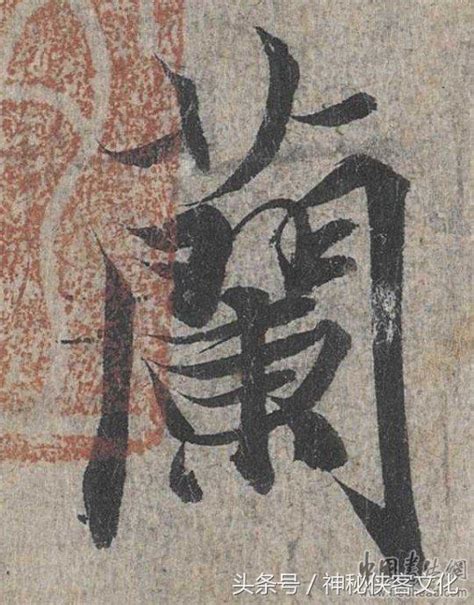 蘭
中国書法網
头条号／神秘侠客文化